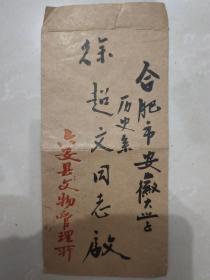 合肥市安徽大学
历史系
徐超文同志啟
六安县文物管理所